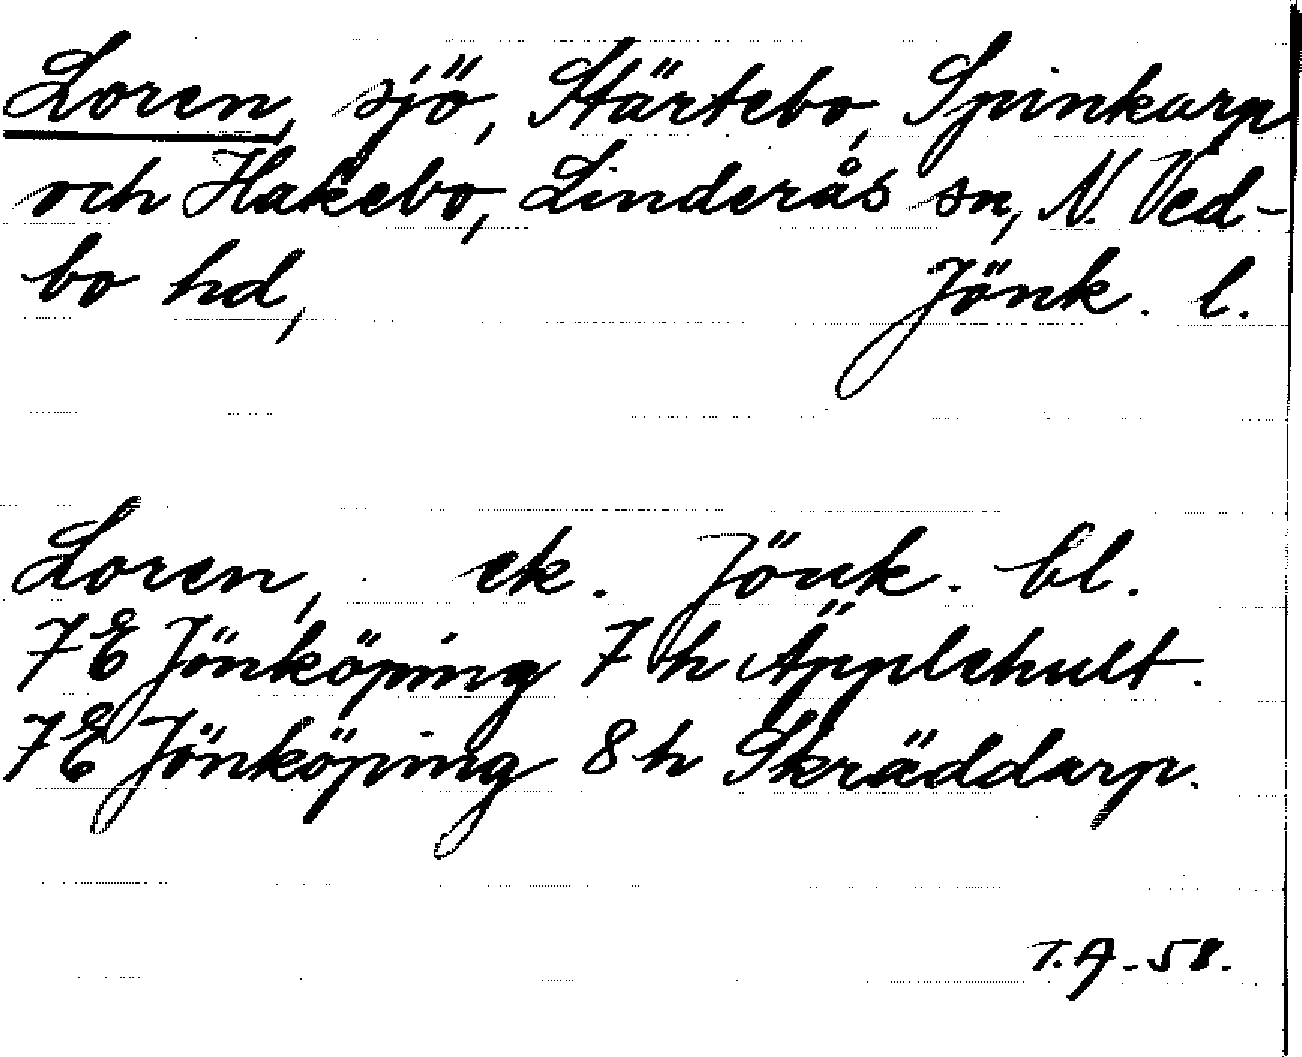 Loren, sjö, Stärtebo, Spinkarp
och Hakebo, Linderås sn, N. Ved-
bo hd, Jönk. l.
Loren, ek. Jönk. bl.
7E Jönköping 7h Äpplehult.
7E Jönköping 8h Skräddarp.
T.A-58.